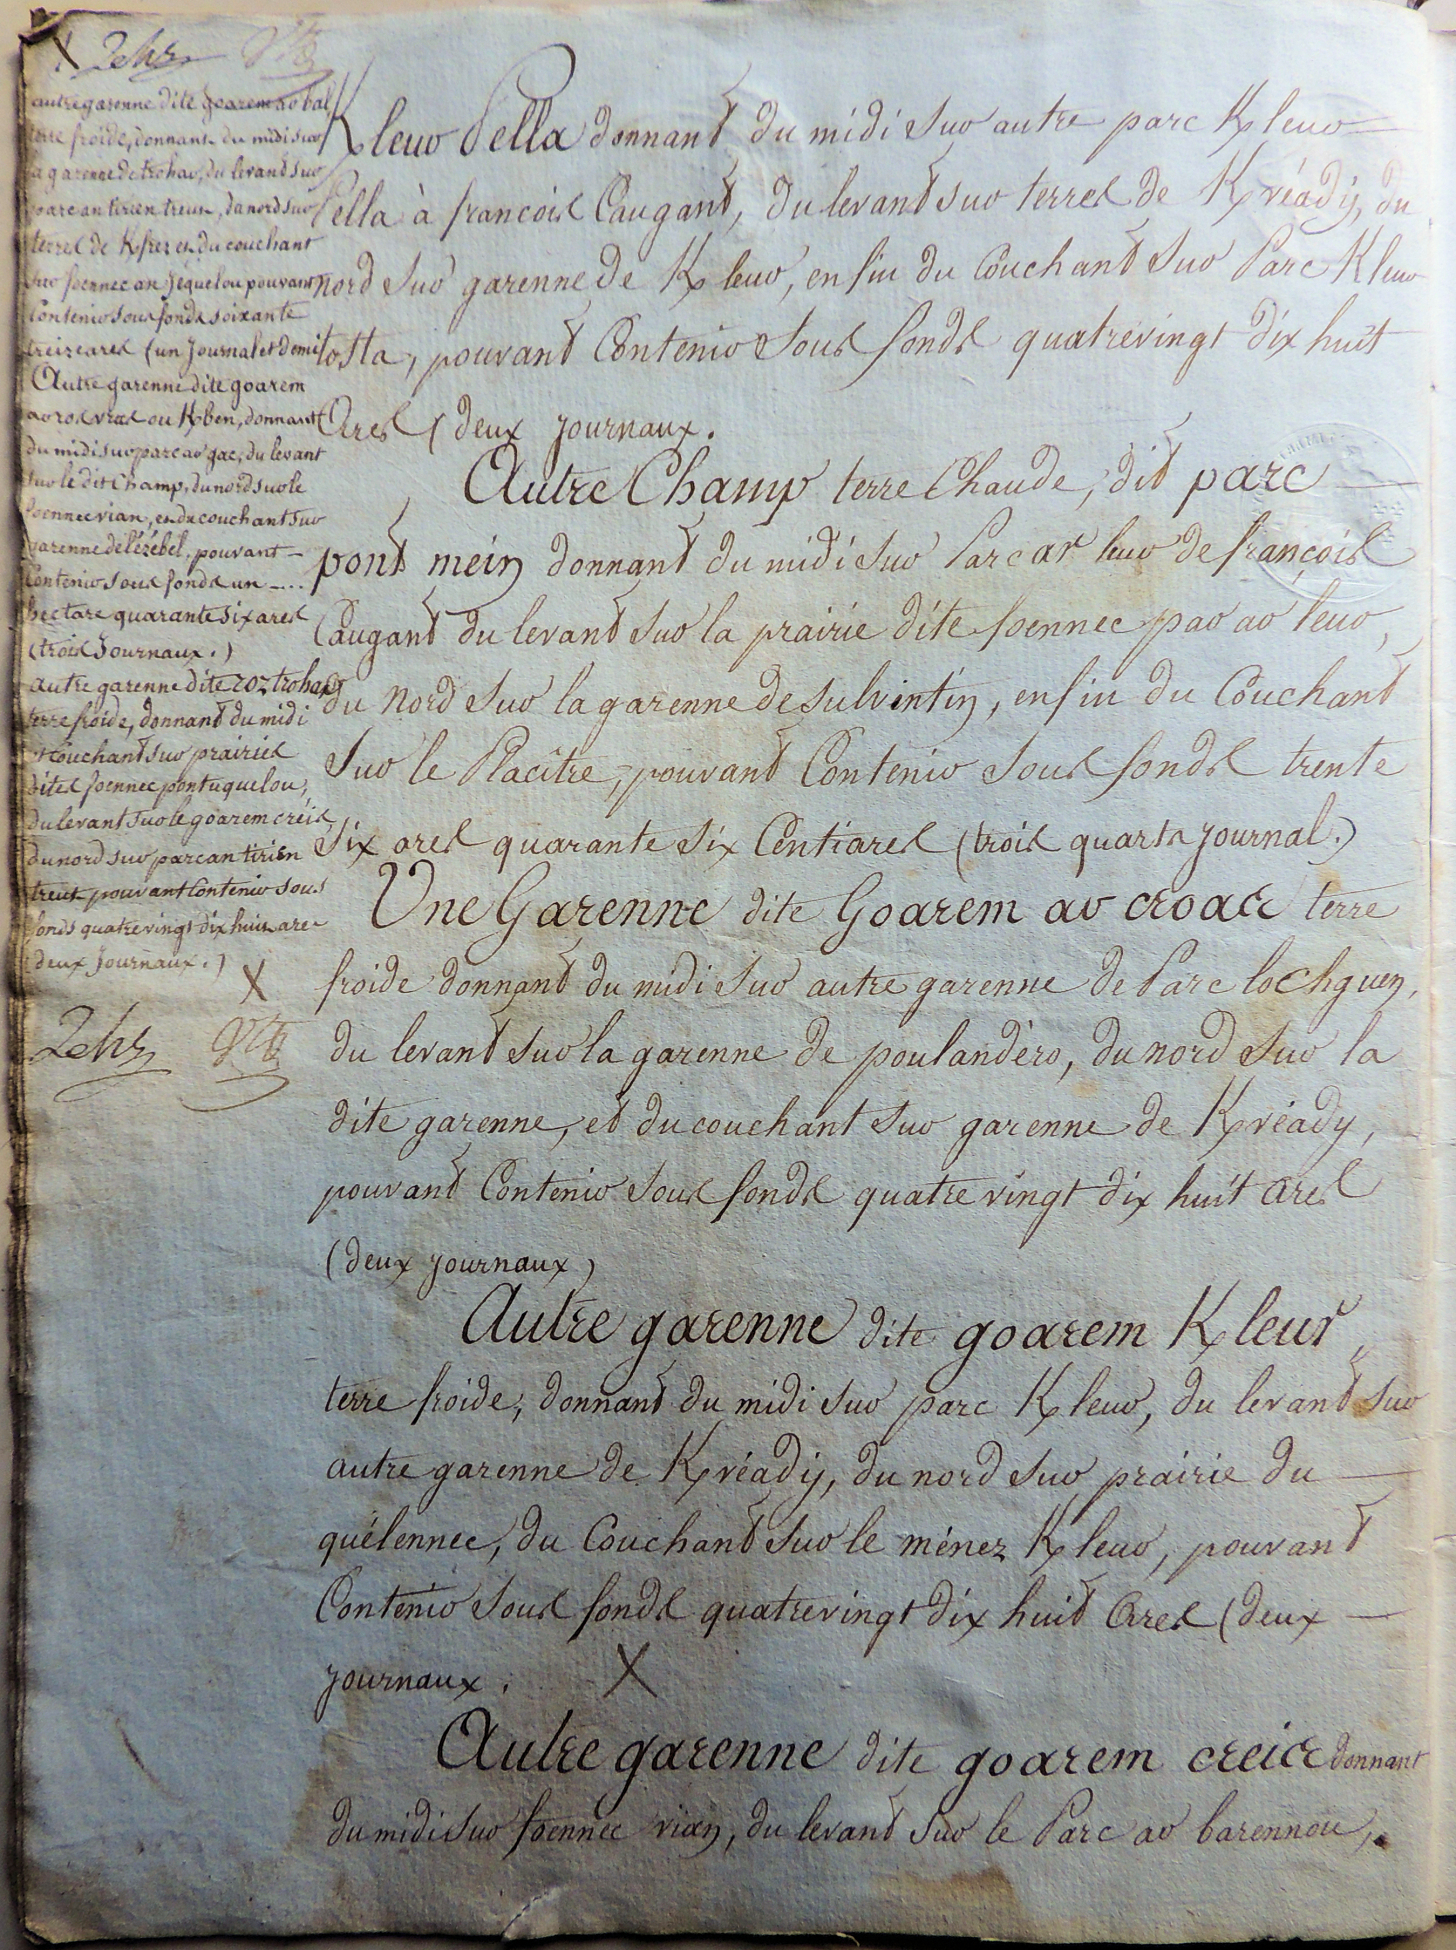 autre garenne dite goarem ar bal
terre froide, donnant du midi sur
la garenne de trohar, du levant sur
parc an tirien treus, du nord sur
terres de Kfrez et du couchant
sur foennec an jéquelou pouvant
Contenir sous fonds soixante
treize ares (un journal et demi
Autre garenne dite goarem
ar ros vras ou Kben, donnant
du midi sur parc ar gac, du levant
sur le dit Champ, du nord sur le
foennec vian, et du couchant sur
garenne de lézébel, pouvant –
Contenir sous fonds un –...
hectare quarante six ares
(trois Journaux.)
autre garenne dite roz trohar
terre froide, donnant du midi
et couchant sur prairies
dites foennec pontuquelou,
du levant sur le goarem créis,
du nord sur parc an tirien
treus pouvant Contenir sous
fonds quatre vingt dix huit ares
(deux Journaux.) X
Kleur Pella donnant du midi sur autre parc Kleur
Pella à françois Caugant, du levant sur terres de Kvéady, du
nord sur garenne de Kleur, enfin du Couchant sur Parc Kleur
tosta, pouvant Contenir sous fonds quatrevingt dix huit
Ares (deux journaux.
Autre Champ terre Chaude, dit parc
pont mein donnant du midi sur Parc ar leur de françois
Caugant du levant sur la prairie dite foennec par ar leur,
du nord sur la garenne de sulvintin, enfin du Couchant
sur le Placître, pouvant Contenir sous fonds trente
six ares quarante six Centiares (trois quarts journal.)
Une Garenne dite Goarem ar croas terre
froide donnant du midi sur autre garenne de Parc lochguen,
du levant sur la garenne de poulandéro, du nord sur la
dite garenne, et du couchant sur garenne de Kvéady,
pouvant Contenir sous fonds quatre vingt dix huit ares
(deux journaux)
Autre garenne dite goarem Kleur,
terre froide, donnant du midi sur parc Kleur, du levant sur
autre garenne de Kvéady, du nord sur prairie du
quélennec, du Couchant sur le ménez Kleur, pouvant
Contenir sous fonds quatrevingt dix huit Ares (deux
journaux. X
Autre garenne dite goarem creis donnant
du midi sur foennec vian, du levant sur le Parc ar barennou,